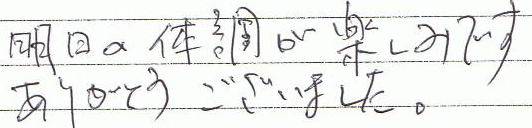 明日の体調が楽しみです
ありがとうございました。